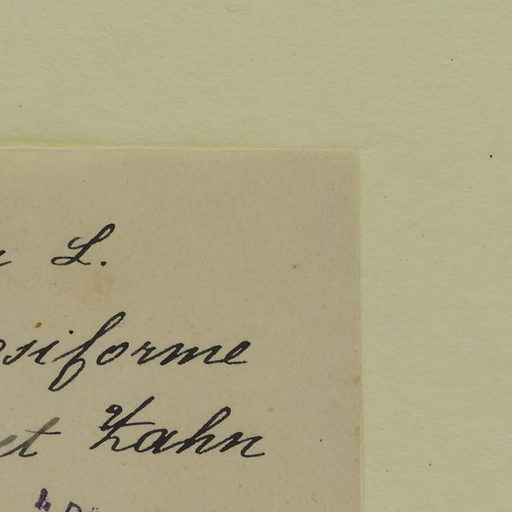 L.
siforme
et Zahn